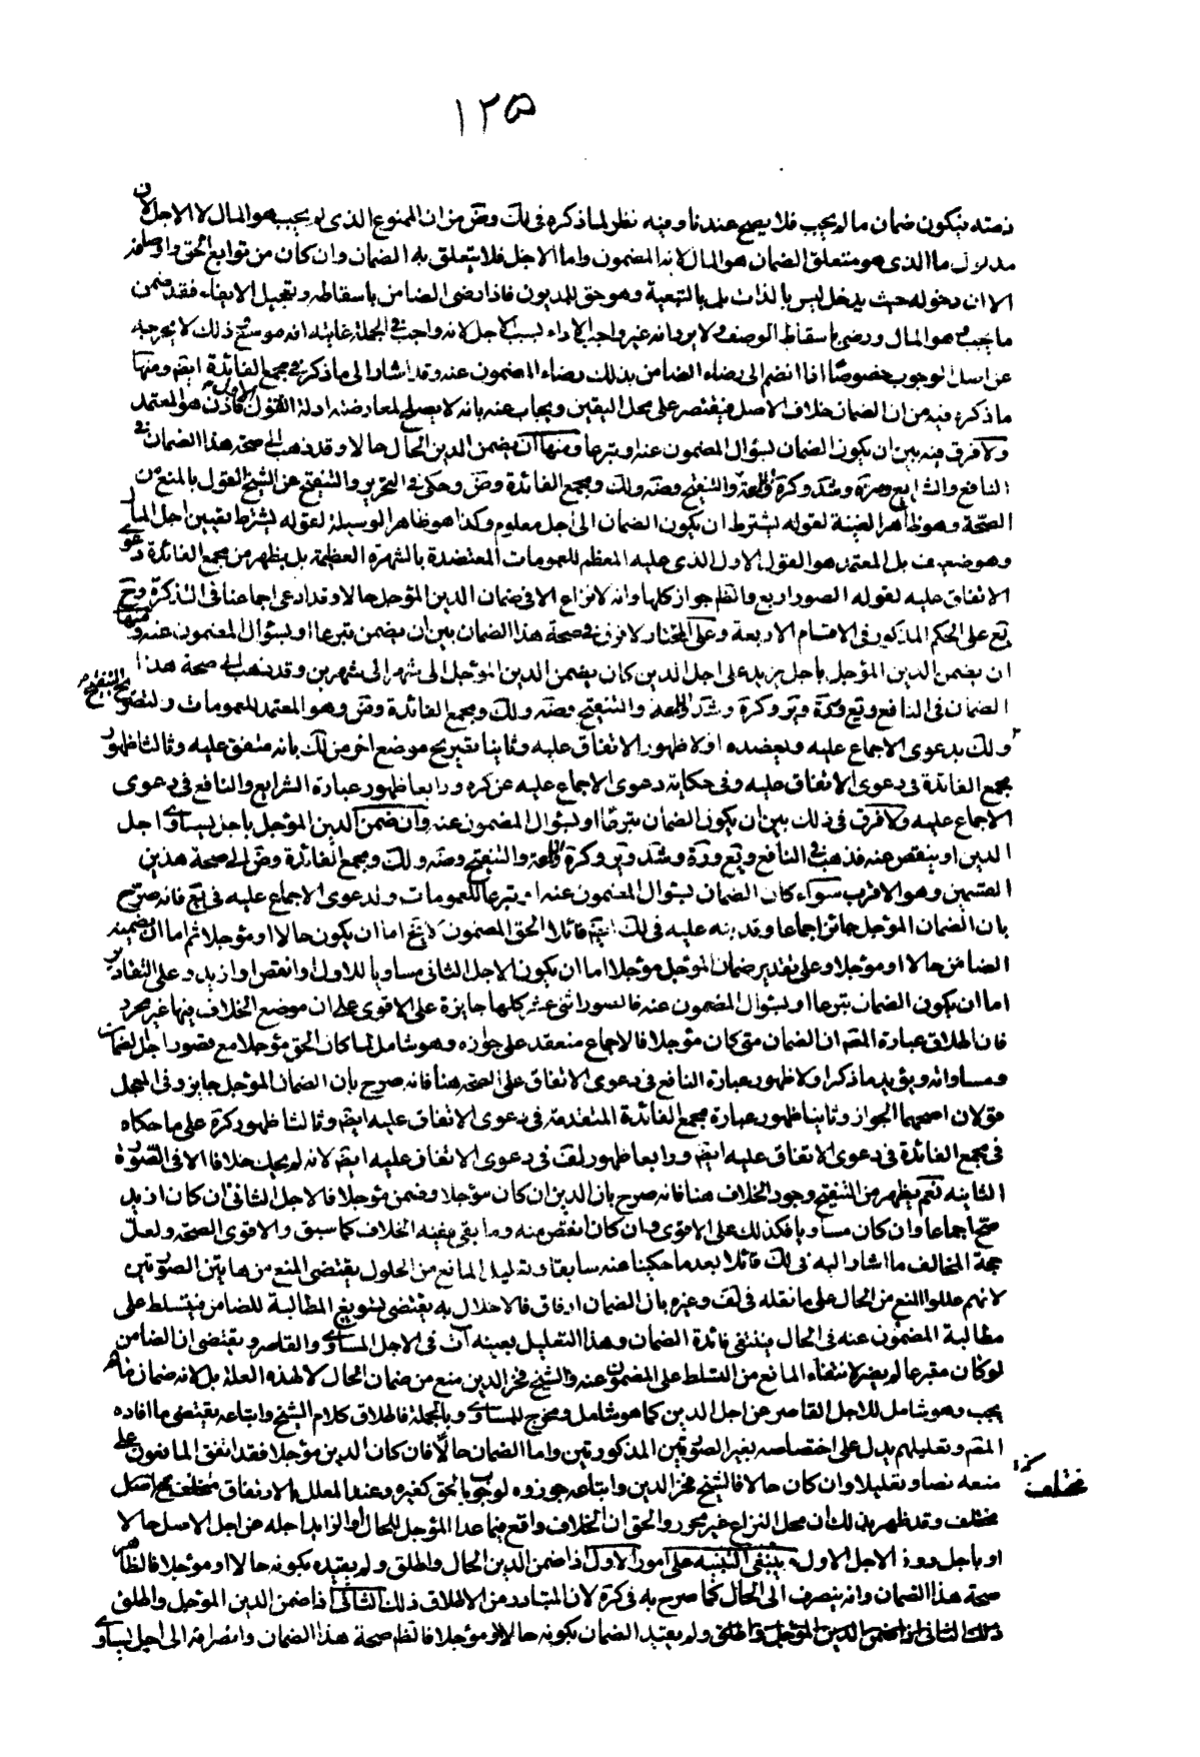 ١٢٥
ذمته فيكون ضمان ما لم يجب فلا يصح عندنا وفيه نظر لما ذكره في لك وض من ان الممنوع الذى لم يجب هو المال لا الاجل لان
مدلول ما الذى هو متعلق الضمان هو المال لانه المضمون واما الاجل فلا يتعلق به الضمان وان كان من توابع الحق واوصافه
الا ان دخوله حيث يدخل ليس بالذات بل بالتبعية وهو حق للمديون فاذا رضى الضامن باسقاطه وتعجيل الايفاء فقد ضمن
ما يجب هو المال ورضى باسقاط الوصف ولا يرد انه غير واجب الاداء لسبب الاجل لانه واجب في الجملة غايته انه موسع ذلك لا يخرجه
عن اصل الوجوب خصوصًا اذا انضم الى رضاء الضامن بذلك رضاء المضمون عنه وقد اشار الى ما ذكره في مجمع الفائدة ايضا ومنها
ما ذكره فيه من ان الضمان خلاف الاصل فيقتصر على محل اليقين ويجاب عنه بانه لا يصلح لمعارضته ادلة القول الاول فاذن هو المعتمد
ولا فرق فيه بين ان يكون الضمان لسؤال المضمون عنه او تبرعا ومنها ان يضمن الدين الحال حالا وقد ذهب الى صحة هذا الضمان في
النافع والشرايع وكرة والتنقيح ولك ومجمع الفائدة وض وحكى في التحرير والتنقيح عن الشيخ القول بالمنع من
الصحة وهو ظاهر الغنية لقوله يشترط ان يكون الضمان الى اجل معلوم وكذا هو ظاهر الوسيلة لقوله يشترط تعيين اجل المال
وهو ضعيف بل المعتمد هو القول الاول الذى عليه المعظم للعمومات المعتضدة بالشهرة العظيمة بل يظهر من مجمع الفائدة دعوى
الاتفاق عليه لقوله الصور اربع والظ جواز كلها وانه لا نزاع الا فى ضمان الدين المؤجل حالا وقد ادعى اجماعنا فى التذكرة وح
يقع على الحكم المذكور فى الاقسام الاربعة وعلى المختار لا فرق في صحة هذا الضمان بين ان يضمن تبرعا او بسؤال المضمون عنه ومنها
ان يضمن الدين المؤجل باجل يزيد على اجل الدين كان يضمن الدين المؤجل الى شهر الى شهرين وقد ذهب الى صحة هذا
الضمان فى النافع ويع وكرة والتنقيح ولك ومجمع الفائدة وض وهو المعتمد للعمومات ولتصريح التنقيح
ولك بدعوى الاجماع عليه ويعضده اولا ظهور الاتفاق عليه وثانيا تصريح موضع اخر من لك بانه متفق عليه وثالثا ظهور
مجمع الفائدة فى دعوى الاتفاق عليه وفى حكايته دعوى الاجماع عليه عن كره ورابعا ظهور عبارة الشرايع والنافع فى دعوى
الاجماع عليه ولا فرق فى ذلك بين ان يكون الضمان متبرعًا او بسؤال المضمون عنه وان ضمن الدين المؤجل باجل يساوى اجل
الدين او ينقص عنه فذهب في النافع ويع وكرة والتنقيح ولك ومجمع الفائدة وض الى صحة هذين
القسمين وهو الاقرب سواء كان الضمان بسؤال المضمون عنه او تبرعا للعمومات ولدعوى الاجماع عليه فى يع فانه صرح
بان الضمان المؤجل جائز اجماعا وقد نبه عليه فى لك ايضا قائلا الحق المضمون اما ان يكون حالا او مؤجلا ثم اما ان يضمنه
الضامن حالا او مؤجلا وعلى تقدير ضمان المؤجل مؤجلا اما ان يكون الاجل الثانى مساويا للاول او انقص او ازيد وعلى التقادير
اما ان يكون الضمان تبرعا او بسؤال المضمون عنه فالصور اثنى عشر كلها جايزة على الاقوى على ان موضع الخلاف فيها غير محرر
فان اطلاق عبارة المصنف ان الضمان متى كان مؤجلا فالاجماع منعقد على جوازه وهو شامل لما كان الحق مؤجلا مع قصور اجل الضمان
ومساواته ويؤيد ما ذكر اولا ظهور عبارة النافع فى دعوى الاتفاق على الصحة هنا فانه صرح بان الضمان المؤجل جايز وفى المعجل
قولان اصحهما الجواز وثانيا ظهور عبارة مجمع الفائدة المتقدمة فى دعوى الاتفاق عليه ايضا وثالثا ظهور كرة على ما حكاه
فى مجمع الفائدة فى دعوى الاتفاق عليه ايضا ورابعا ظهور لف فى دعوى الاتفاق عليه ايضا لانه لم يحك خلافا الا فى الصورة
الثانيه نعم يظهر من التنقيح وجود الخلاف هنا فانه صرح بان الدين ان كان مؤجلا وضمن مؤجلا فالاجل الثانى ان كان ازيد
صح اجماعا وان كان مساويا فكذلك على الاقوى وان كان انقص منه وما بقى ففيه الخلاف كما سبق والاقوى الصحة ولعل
حجة المخالف ما اشار اليه فى لك قائلا بعد ما حكينا عنه سابقا وتعليل المانع من الحلول يقتضى المنع من هاتين الصورتين
لانهم عللوا المنع من الحال على ما نقله فى لف وغيره بان الضمان ارفاق فالاخلال به يقتضى تسويغ المطالبة للضامن فيتسلط على
مطالبة المضمون عنه فى الحال فينتفى فائدة الضمان وهذا التعليل بعينه آت فى الاجل المساوى والقاصر ويقتضى ان الضامن
لو كان متبرعا لم يضر لانتفاء المانع من التسلط على المضمون عنه والشيخ فخر الدين منع من ضمان الحال لا لهذه العلة بل لانه ضمان ما لم
يجب وهو شامل للاجل القاصر عن اجل الدين كما هو شامل ومخرج للمساوى وبالجملة فاطلاق كلام الشيخ واتباعه يقتضى ما افاده
المصنف وتعليلهم يدل على اختصاصه بغير الصورتين المذكورتين واما الضمان حالًا فان كان الدين مؤجلا فقد اتفق المانعون على
منعه نصا وتعليلا وان كان حالا فالشيخ فخر الدين واتباعه جوزوه لوجوب الحق كغيره وعند المعلل بالارتفاق
مختلف وقد ظهر بذلك ان محل النزاع غير محرر والحق ان الخلاف واقع فيما عدا المؤجل للحال او الزايد اجله عن اجل الاصل حالا
او باجل دون الاجل الاول ينبغى التنبيه على امور الاول اذا ضمن الدين الحال واطلق ولم يقيده بكونه حالا او مؤجلا فالظاهر
صحة هذا الضمان وانه ينصرف الى الحال كما صرح به فى كرة لان المتبادر من الاطلاق ذلك الثانى اذا ضمن الدين المؤجل واطلق
ذلك الثانى اذا ضمن الدين المؤجل واطلق ولم يقيد الضمان بكونه حالا او مؤجلا فالظ صحة هذا الضمان وانصرافه الى اجل يساوى